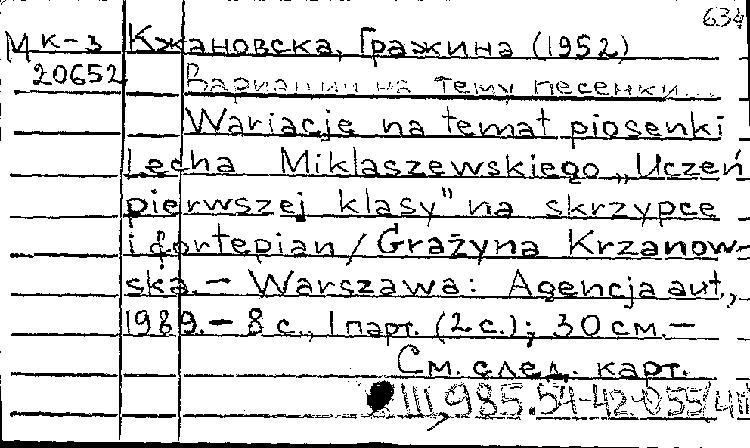 634
М К-3 Кжановска, Гражина (1952)
20652 Вариации на тему песенки...
Wariacje na temat piosenki
Lecha Miklaszewskiego „Uczeń
pierwszej klasy" na skrzypce
i fortepian / Grażyna Krzanow-
ska. — Warszawa: Agencja aut.,
1989. — 8 с., 1 парт. (2 с.); 30 см. —
См. след. карт.
III, 985.54-42-055/4